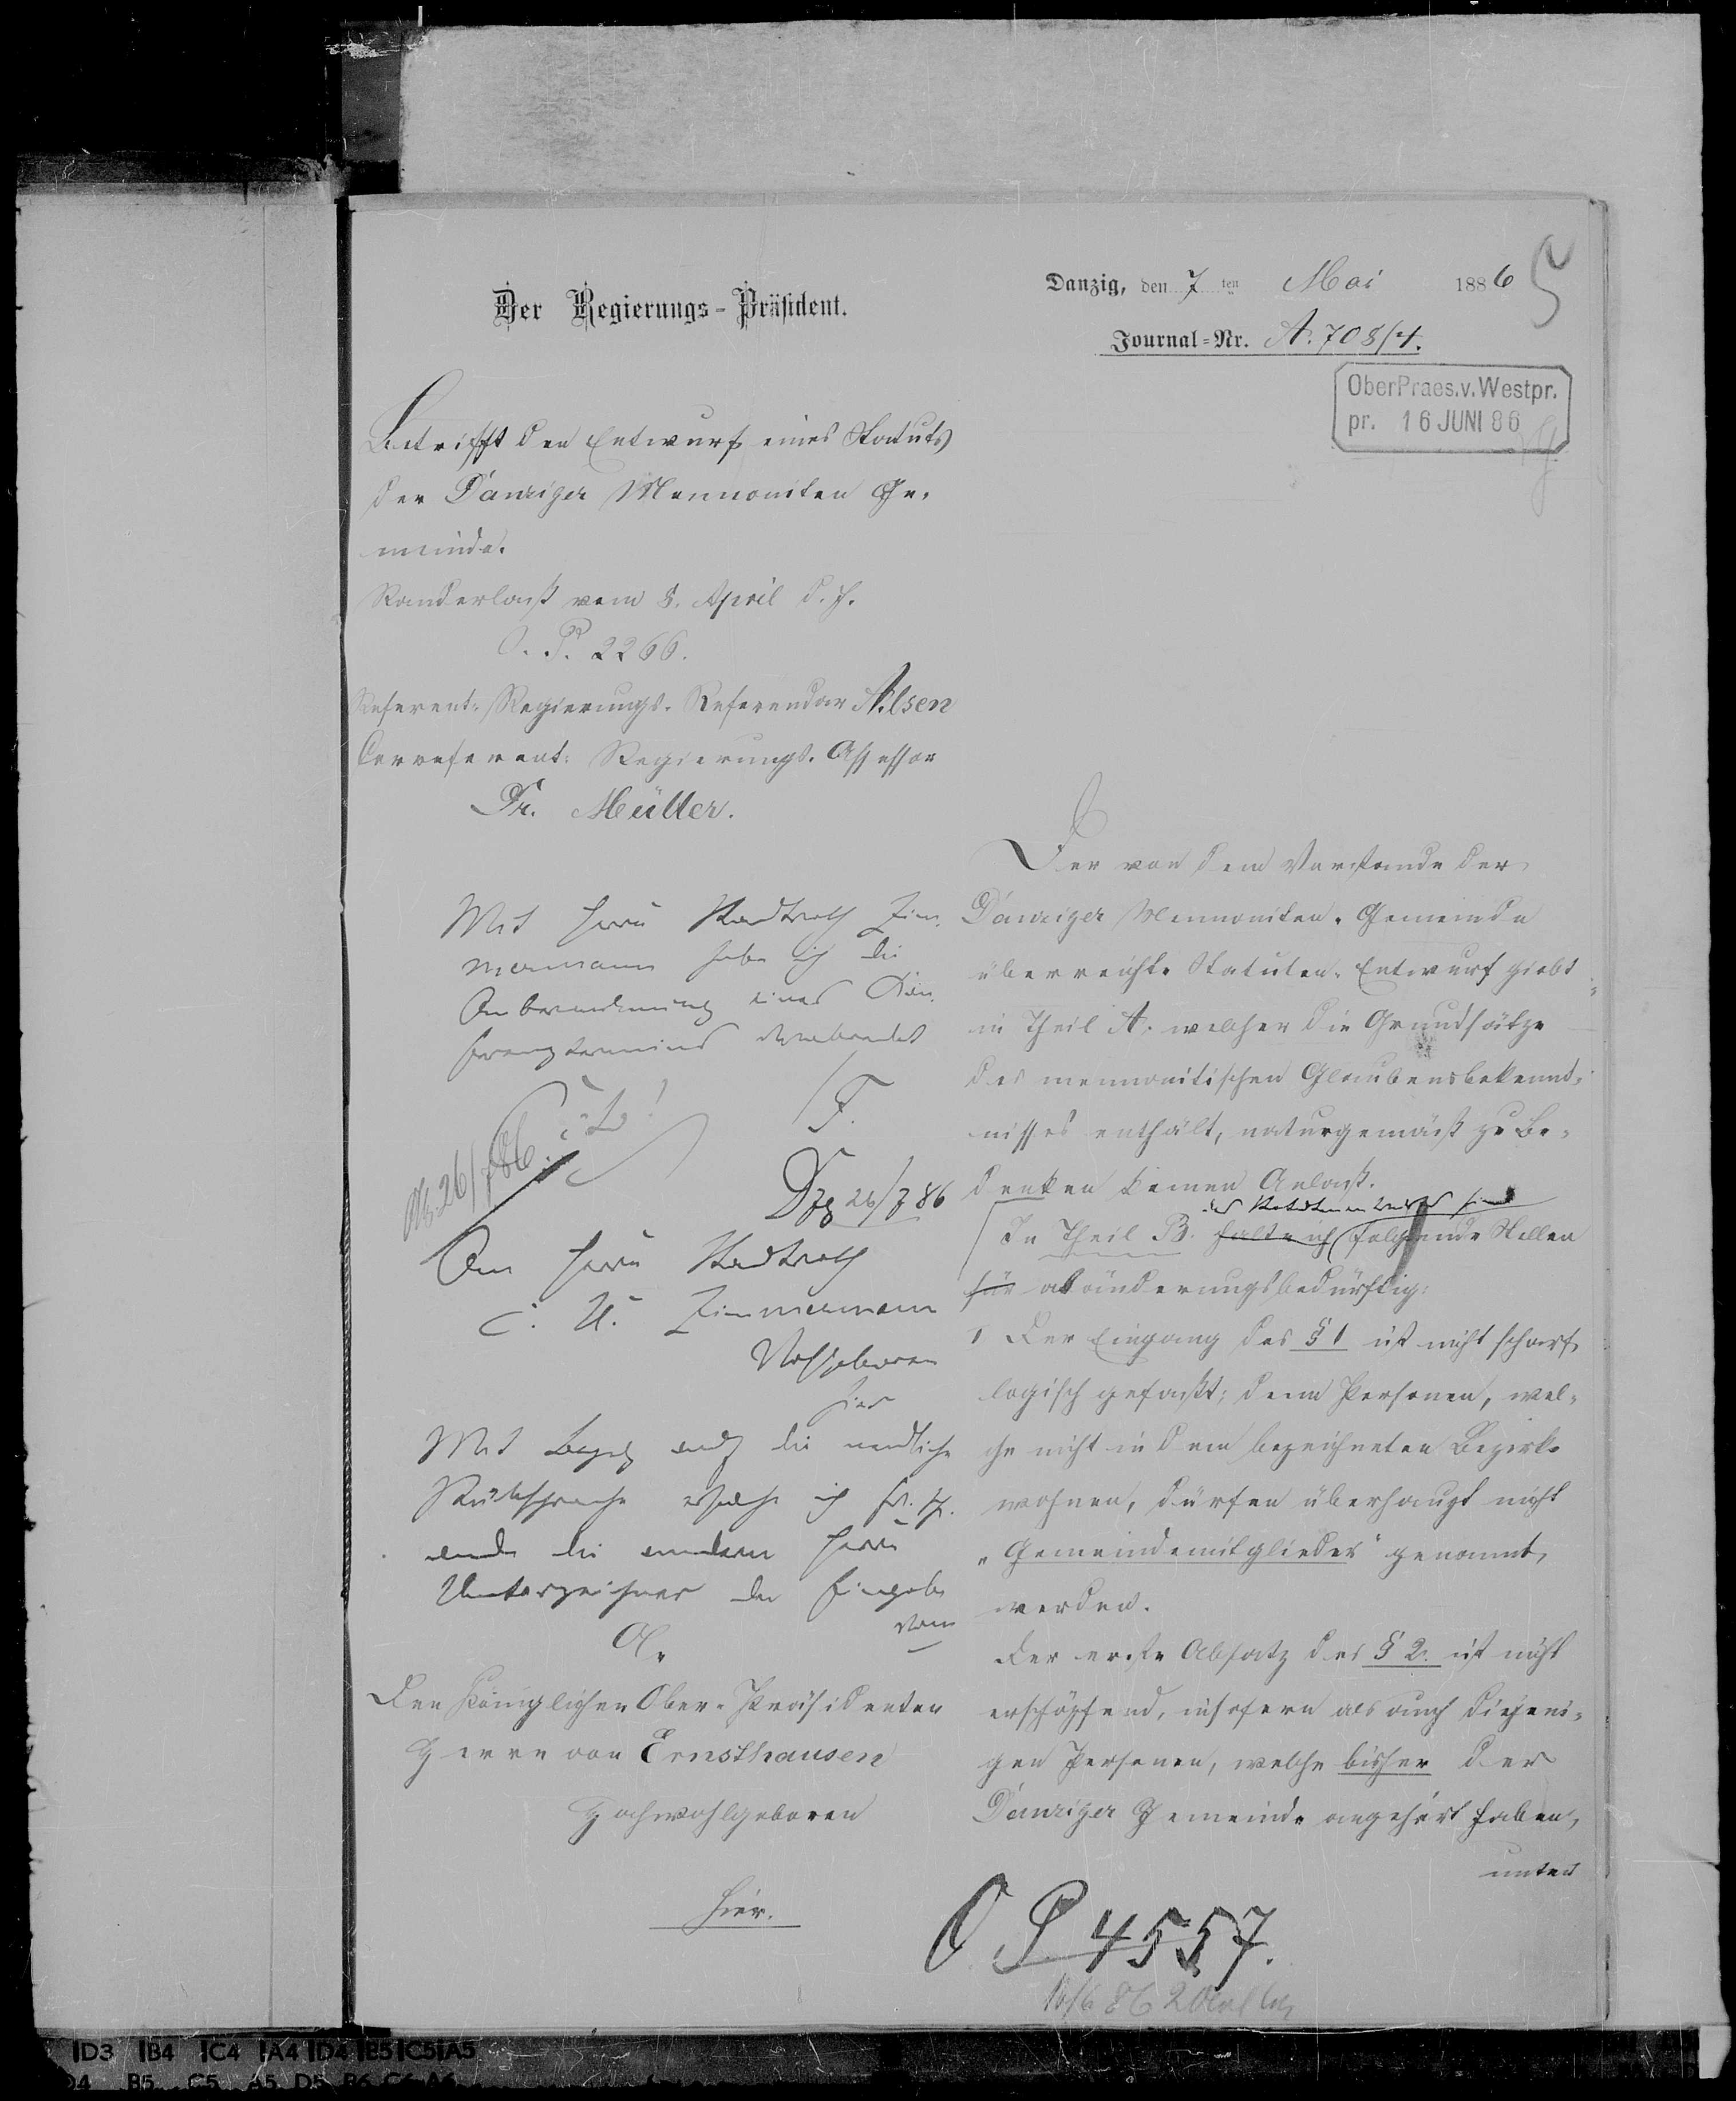 Der Regierungs-Präsident.
Danzig, den 7 ten Mai 1886
5
Journal-Nr. A. 708/4.
OberPraes.v.Westpr.
pr. 16 JUNI 86
Betrifft den Entwurf eines Statuts
der Danziger Mennoniten Ge-
meinde.
Randerlaß vom 8. April d. J.
O. P. 2266.
Referent: Regierungs-Referendar Alsen
Correferent: Regierungs-Assessor
Dr. Müller.
Mit Herrn Stadtrath Zim-
mermann habe ich die
Anberaumung eines Con-
ferenztermins verabredet
Dzg 26/7 86
An Herrn Stadtrath
Zimmermann
Wohlgeboren
hier
Mit Bezug auf die mündliche
Rücksprache ersuche ich
und die anderen Herrn
Unterzeichner der Eingabe
vom
Den Königlichen Ober-Präsidenten
Herrn von Ernsthausen
Hochwohlgeboren
hier.
Der von dem Vorstande der
Danziger Mennoniten-Gemeinde
überreichte Statuten-Entwurf giebt
in Theil A. welcher die Grundsätze
des mennonitischen Glaubensbekennt-
nisses enthält, naturgemäß zu Be-
denken keinen Anlaß.
des Statutenentwurfs sind
In Theil B. halte ich folgende Stellen
für abänderungsbedürftig:
1 Der Eingang des § 1 ist nicht scharf
logisch gefaßt; denn Personen, wel-
che nicht in dem bezeichneten Bezirke
wohnen, dürfen überhaupt nicht
„Gemeindemitglieder" genannt
werden.
Der erste Absatz des § 2. ist nicht
erschöpfend, insofern als auch diejeni-
gen Personen, welche bisher der
Danziger Gemeinde angehört haben,
unter
O. P. 4557.
16/6 86